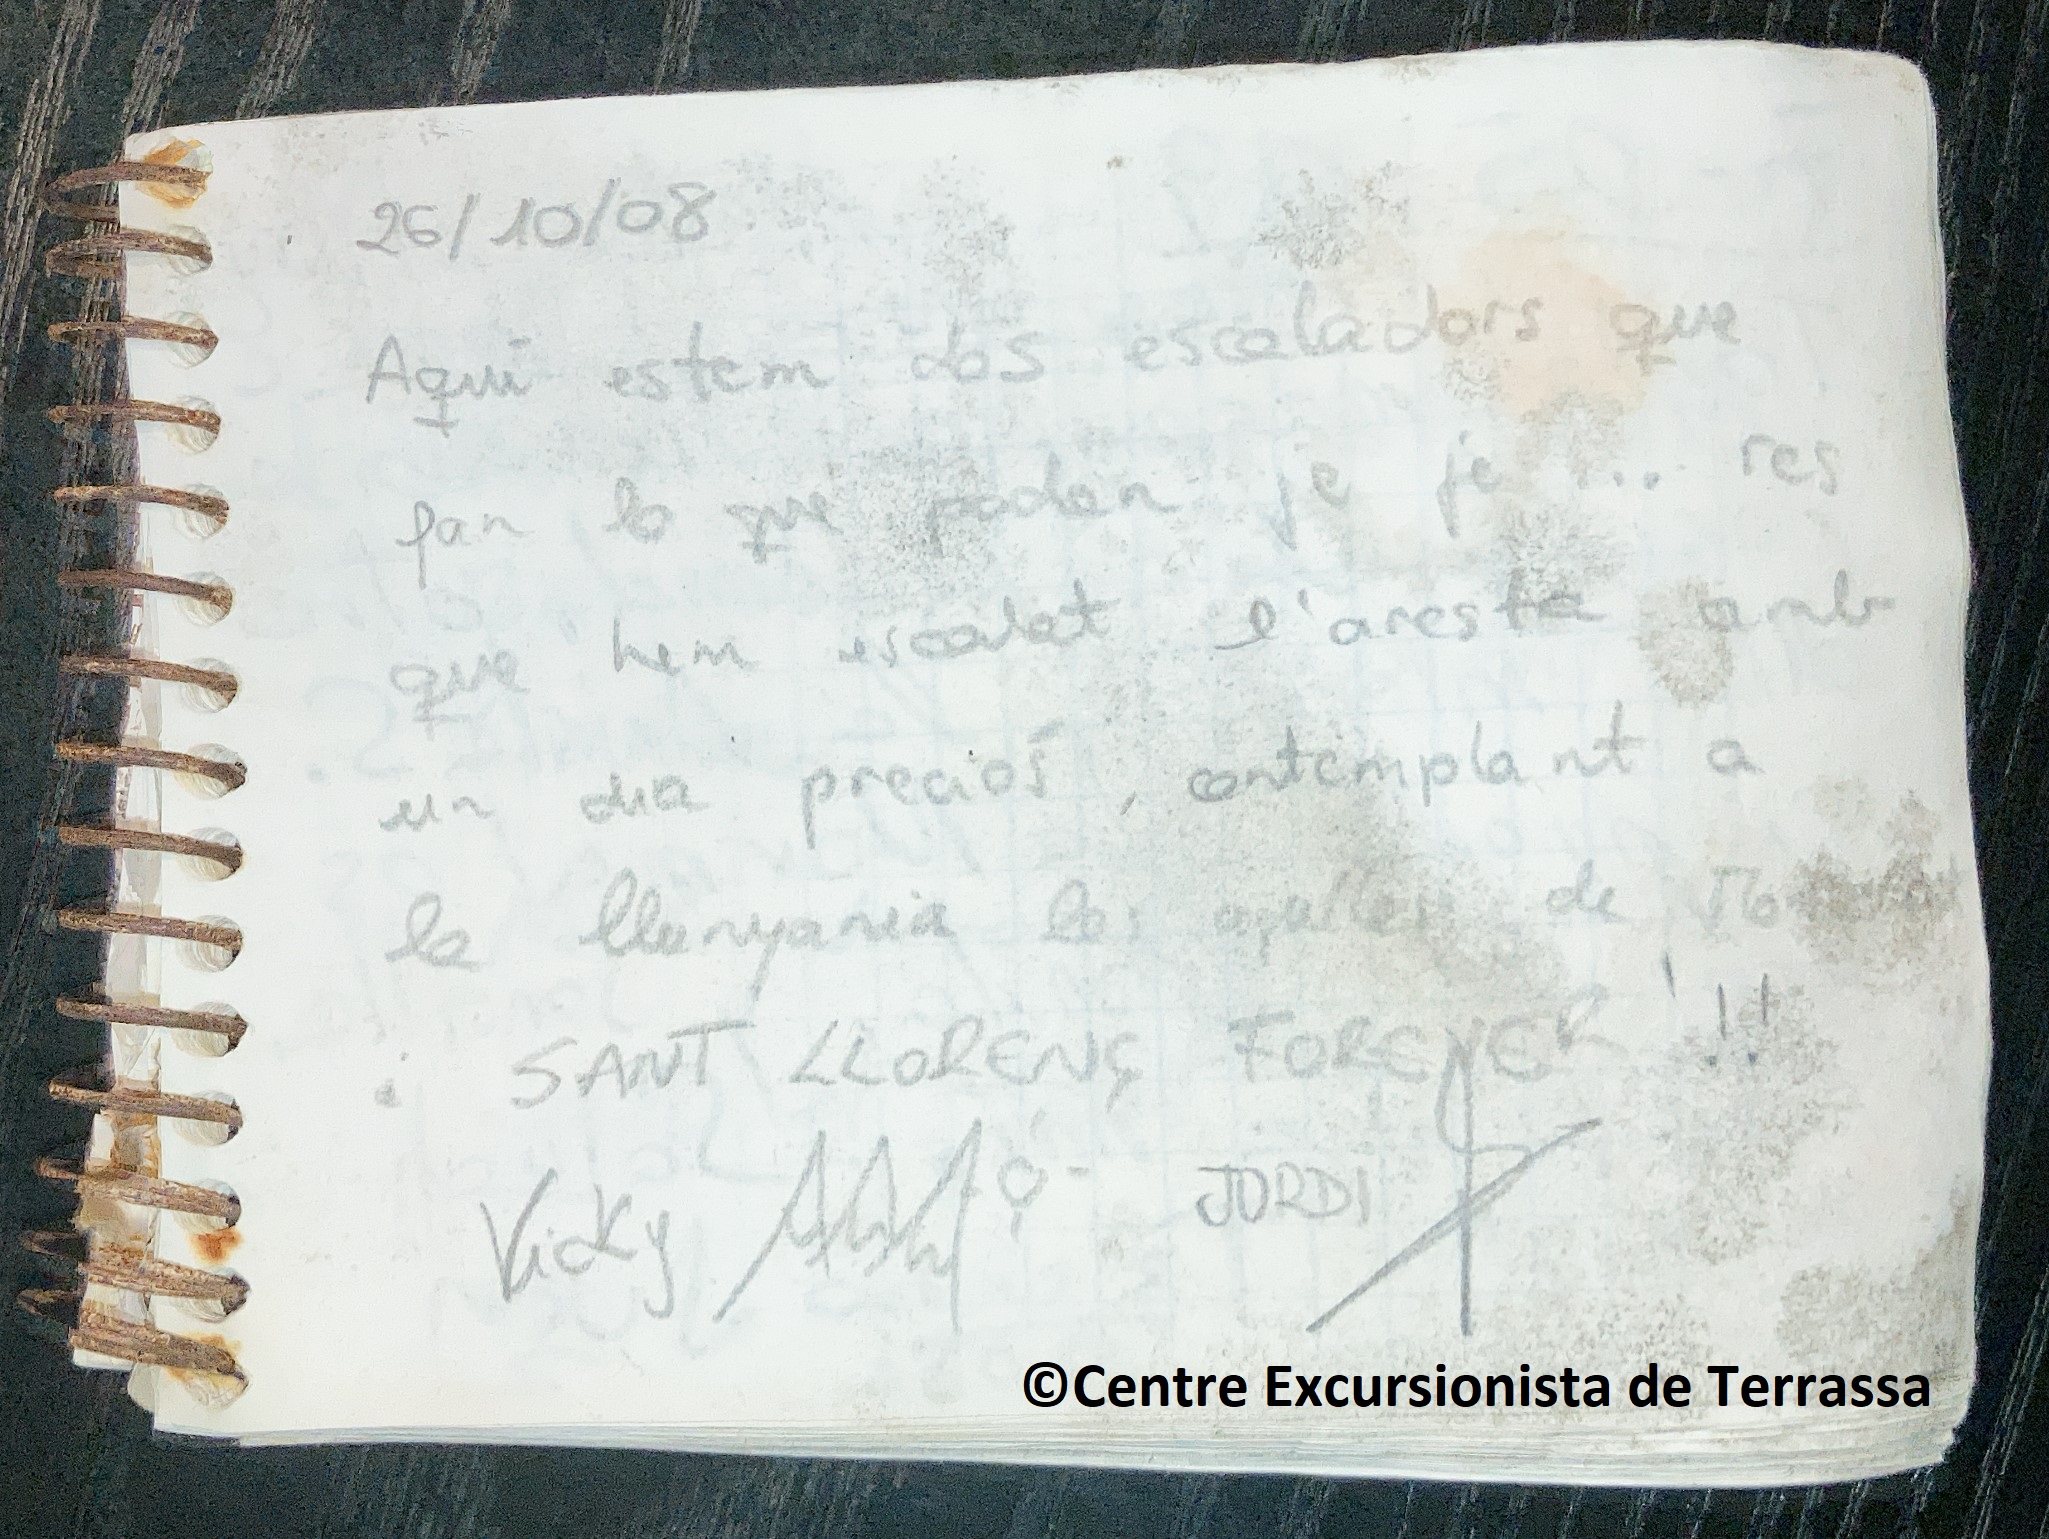 26/10/08
Aqui estem dos escaladors que
fan lo que poden je je ... res
que hem escalat l'aresta amb
un dia preciós, contemplant a
la llunyania les agulles de
¡ SANT LLORENÇ FOREVER !!!
Vicky JORDI
©Centre Excursionista de Terrassa